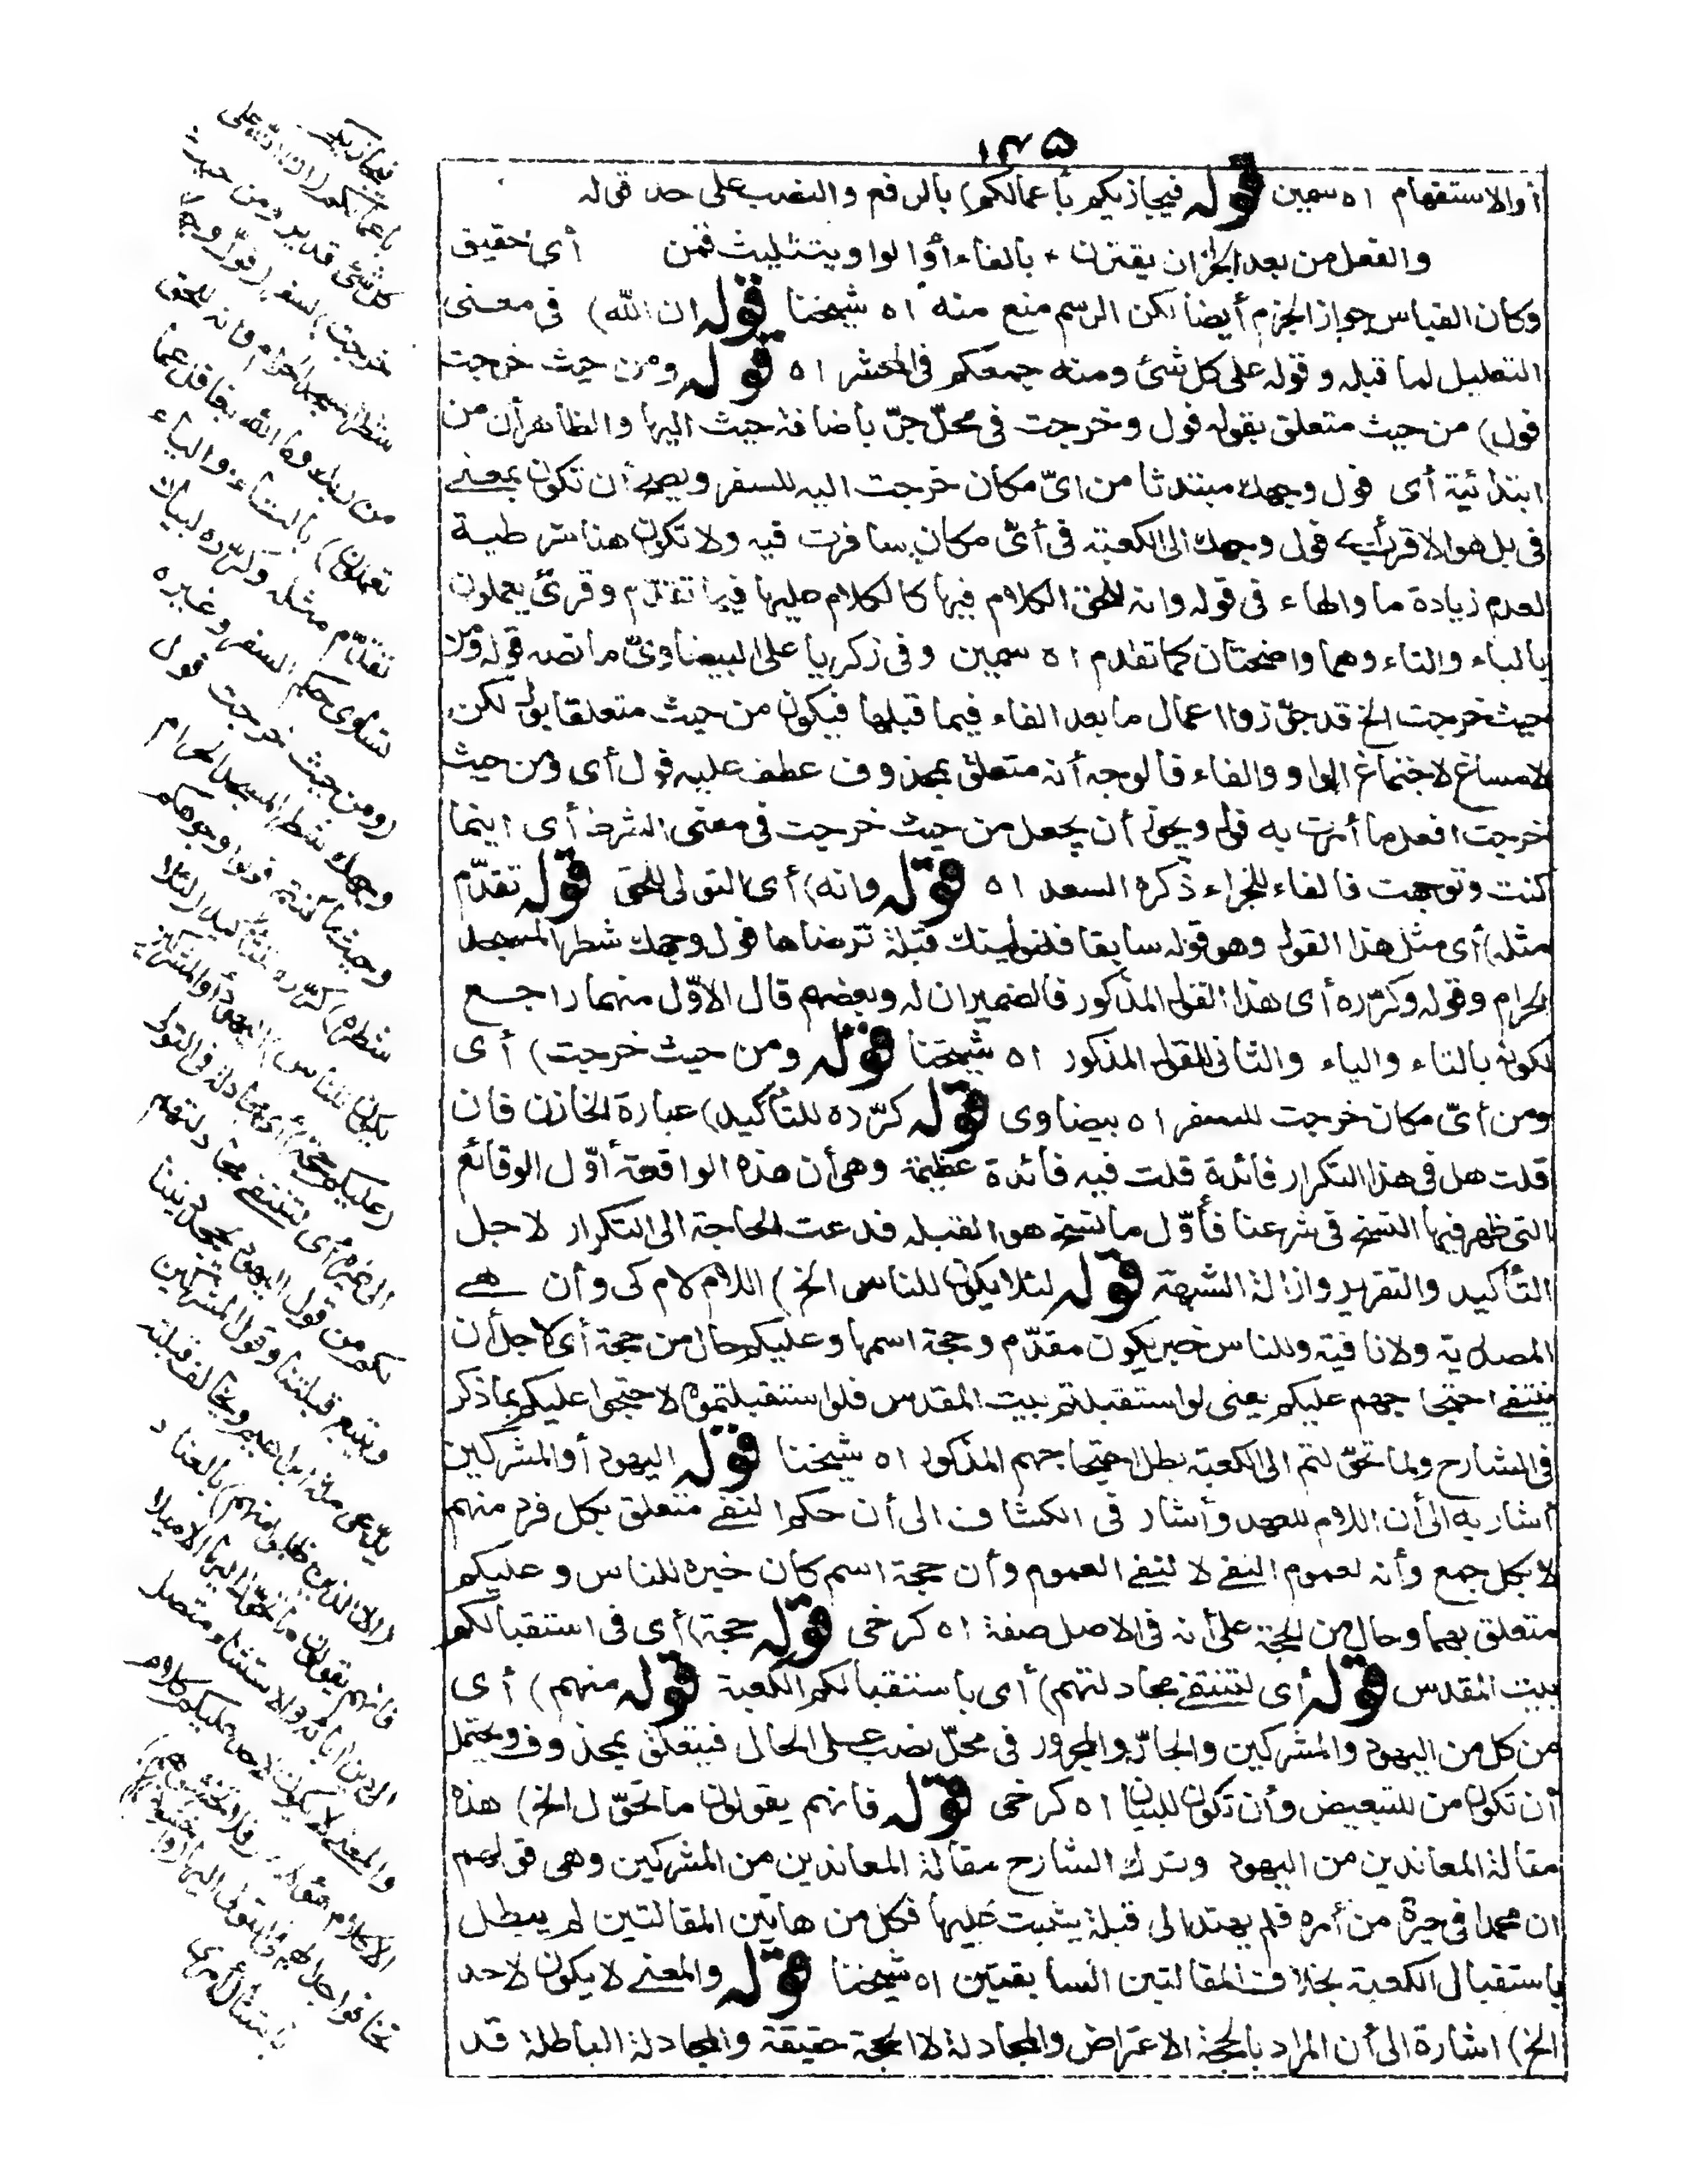 ١٢٥
أوالاستفهام اه سمين قوله فيجازيكم بأعمالكم) بالرفع والنصب على حد قوله
والفعل من بعد الجزا ان يقترن * بالفاء أوالوا وبتثليث قمن أي حقيق
وكان القياس جواز الجزم أيضا لكن الرسم منع منه اه شيخنا قوله ان الله) في معنى
التعليل لما قبله وقوله على كل شئ ومنه جمعكم في المحشر اه قوله ومن حيث خرجت
فول) من حيث متعلق بقوله فول وخرجت في محل جر باضافة حيث اليها والظاهر أن من
ابتدائية أي فول وجهك مبتدئا من اي مكان خرجت اليه للسفر ويصح أن تكون بمعنى
في بل هو الاقرب أي فول وجهك الى الكعبة في أي مكان سافرت فيه ولا تكون هنا شرطية
لعدم زيادة ما والهاء في قوله وانه للحق الكلام فيها كالكلام عليها فيما تقدم وقرئ يعملون
بالياء والتاء وهما واضحتان كما تقدم اه سمين وفي زكريا على البيضاوي ما نصه قوله ومن
حيث خرجت الخ قد جوزوا اعمال ما بعد الفاء فيما قبلها فيكون من حيث متعلقا بول لكن
لا مساغ لاجتماع الواو والفاء فالوجه أنه متعلق بمحذوف عطف عليه فول أي ومن حيث
خرجت افعل ما أمرت به فول ويجوز أن يجعل من حيث خرجت في معنى الشرط أي اينما
كنت وتوجهت فالفاء للجزاء ذكره السعد اه قوله وانه) أي التولي للحق قوله تقدم
مثله) أي مثل هذا القول وهو قوله سابقا فلنولينك قبلة ترضاها فول وجهك شطر المسجد
الحرام وقوله وكرره أي هذا القول المذكور فالضميران له وبعضهم قال الاول منهما راجع
لكونه بالتاء والياء والثاني للقول المذكور اه شيخنا قوله ومن حيث خرجت) أي
ومن أي مكان خرجت للسفر اه بيضاوي قوله كرره للتأكيد) عبارة الخازن فان
قلت هل في هذا التكرار فائدة قلت فيه فائدة عظيمة وهي أن هذه الواقعة أول الوقائع
التي ظهر فيها النسخ في شرعنا فأول ما نسخ هو القبلة فدعت الحاجة الى التكرار لاجل
التأكيد والتقرير وازالة الشبهة قوله لئلا يكون للناس الخ) اللام لام كي وأن هي
المصدرية ولا نافية وللناس خبر يكون مقدم وحجة اسمها وعليكم حال من حجة أي لاجل أن
ينتفي احتجاجهم عليكم يعني لو استقبلتم بيت المقدس فلو استقبلتموه لاحتجوا عليكم بما ذكر
في الشارح ولما تحولتم الى الكعبة بطل احتجاجهم المذكور اه شيخنا قوله اليهود أوالمشركين
أشار به الى أن اللام للعهد وأشار في الكشاف الى أن حكم النفي متعلق بكل فرد منهم
لا بكل جمع وأنه لعموم النفي لا لنفي العموم وأن حجة اسم كان خبره للناس وعليكم
متعلق بهما وحال من الحجة على أنه في الاصل صفة اه كرخي قوله حجة) أي في استقبالكم
بيت المقدس قوله أي لتنتفي مجادلتهم) أي باستقبالكم الكعبة قوله منهم) أي
من كل من اليهود والمشركين والجار والمجرور في محل نصب على الحال فيتعلق بمحذوف ويحتمل
أن تكون من للتبعيض وأن تكون للبيان اه كرخي قوله فانهم يقولون ما تحول الخ) هذه
مقالة المعاندين من اليهود وترك الشارح مقالة المعاندين من المشركين وهي قولهم
ان محمدا في حيرة من أمره فلم يهتد الى قبلة يثبت عليها فكل من هاتين المقالتين لم يبطل
باستقبال الكعبة بخلاف المقالتين السابقتين اه شيخنا قوله والمعنى لا يكون لاحد
الخ) اشارة الى أن المراد بالحجة الاعتراض والمجادلة لا الحجة حقيقة والمجادلة الباطلة قد
فيجازيكم
بأعمالكم (ان الله على
كل شئ قدير ومن حيث
خرجت) لسفر (فول وجهك
شطر المسجد الحرام وانه للحق
من ربك وما الله بغافل عما
تعملون) بالتاء والياء
تقدم مثله وكرره لبيان
تساوي حكم السفر وغيره
(ومن حيث خرجت فول
وجهك شطر المسجد الحرام
وحيث ما كنتم فولوا وجوهكم
شطره) كرره للتأكيد (لئلا
يكون للناس) اليهود أو المشركين
(عليكم حجة) أي مجادلة في التولي
الى غيره أي لتنتفي مجادلتهم
لكم من قول اليهود يجحد ديننا
ويتبع قبلتنا وقول المشركين
يدعي ملة ابراهيم ويخالف قبلته
(الا الذين ظلموا منهم) بالعناد
فانهم يقولون ما تحول اليها الا ميلا
الى دين آبائه والاستثناء متصل
والمعنى لا يكون لاحد عليكم كلام
الا كلام هؤلاء (فلا تخشوهم)
تخافوا جدالهم في التولي اليها (واخشوني)
بامتثال أمري